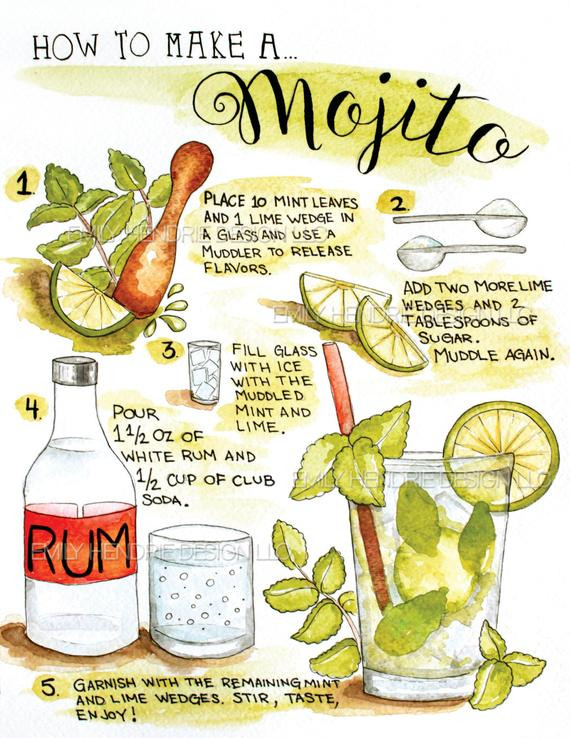 HOW TO MAKE A...
Mojito
1.
PLACE 10 MINT LEAVES
AND 1 LIME WEDGE IN
A GLASS AND USE A
MUDDLER TO RELEASE
FLAVORS.
2.
ADD TWO MORE LIME
WEDGES AND 2
TABLESPOONS OF
SUGAR.
MUDDLE AGAIN.
3.
FILL GLASS
WITH ICE
WITH THE
MUDDLED
MINT AND
LIME.
4.
POUR
1 1/2 OZ OF
WHITE RUM AND
1/2 CUP OF CLUB
SODA.
RUM
5. GARNISH WITH THE REMAINING MINT
AND LIME WEDGES. STIR, TASTE,
ENJOY!
EMILY HENDRIE DESIGN LLC
EMILY HENDRIE DESIGN LLC
EMILY HENDRIE DESIGN LLC
EMILY HENDRIE DESIGN LLC